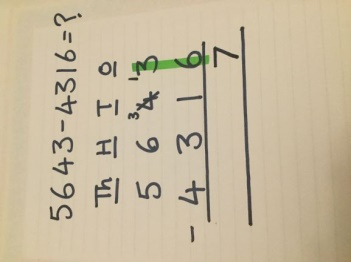 5643-4316=?
Th H T O
5 6 ³4 ¹3
- 4 3 1 6
7